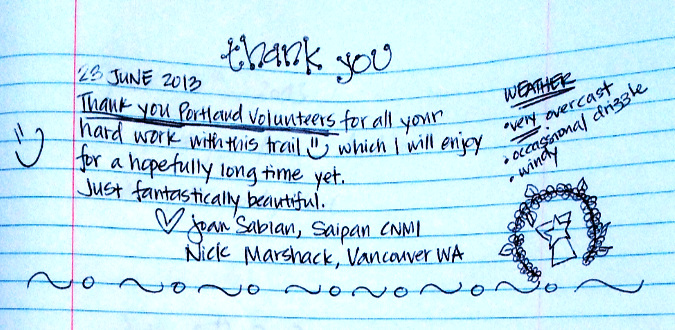 thank you
23 JUNE 2013
Thank you Portland Volunteers for all your
hard work with this trail which I will enjoy
for a hopefully long time yet.
Just fantastically beautiful.
Joan Sablan, Saipan CNMI
Nick Marshack, Vancouver WA
WEATHER
• very overcast
• occassional drizzle
• windy